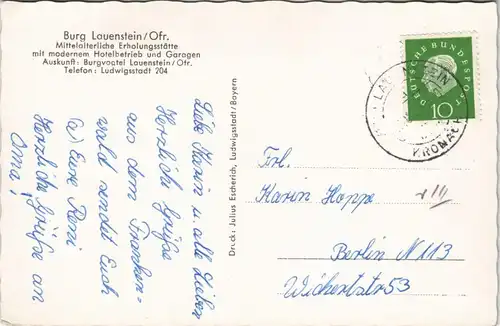 Burg Lauenstein/Ofr.
Mittelalterliche Erholungsstätte
mit modernem Hotelbetrieb und Garagen
Auskunft: Burgvogtei Lauenstein/Ofr.
Telefon: Ludwigsstadt 204
Liebe Karin u. alle Lieben
Herzliche Grüße
aus dem Franken=
wald sendet Euch
Eure Reni
Herzliche Grüße an
Oma!
Druck: Julius Escherich, Ludwigsstadt/Bayern
DEUTSCHE BUNDESPOST
10
LAUENSTEIN
KRONACH
Frl.
Karin Hoppe
Berlin N 113
Wichertstr 53